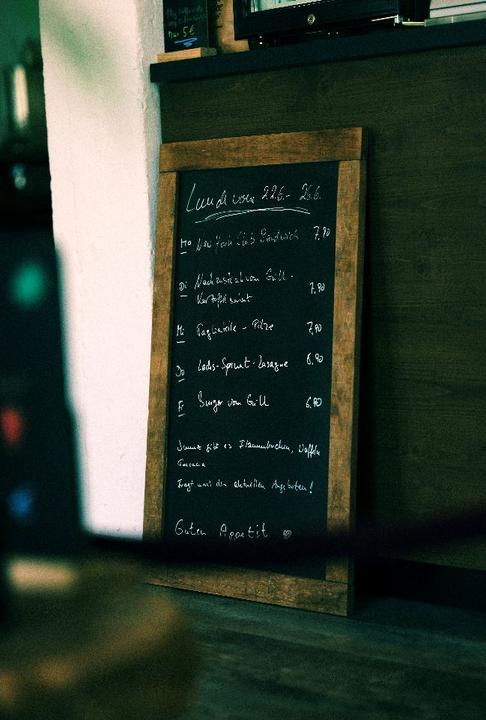 nur 5€
Lunch vom 22.6. - 26.6.
Mo New York Club Sandwich 7,90
Di vom Grill -
Kartoffelsalat 7,90
Mi Tagliatelle - Pilze 7,90
Do Lachs-Spinat-Lasagne 6,90
F Burger vom Grill 6,90
Immer gibt es Flammkuchen, Waffeln
Focaccia
Fragt nach den aktuellen Angeboten!
Guten Appetit